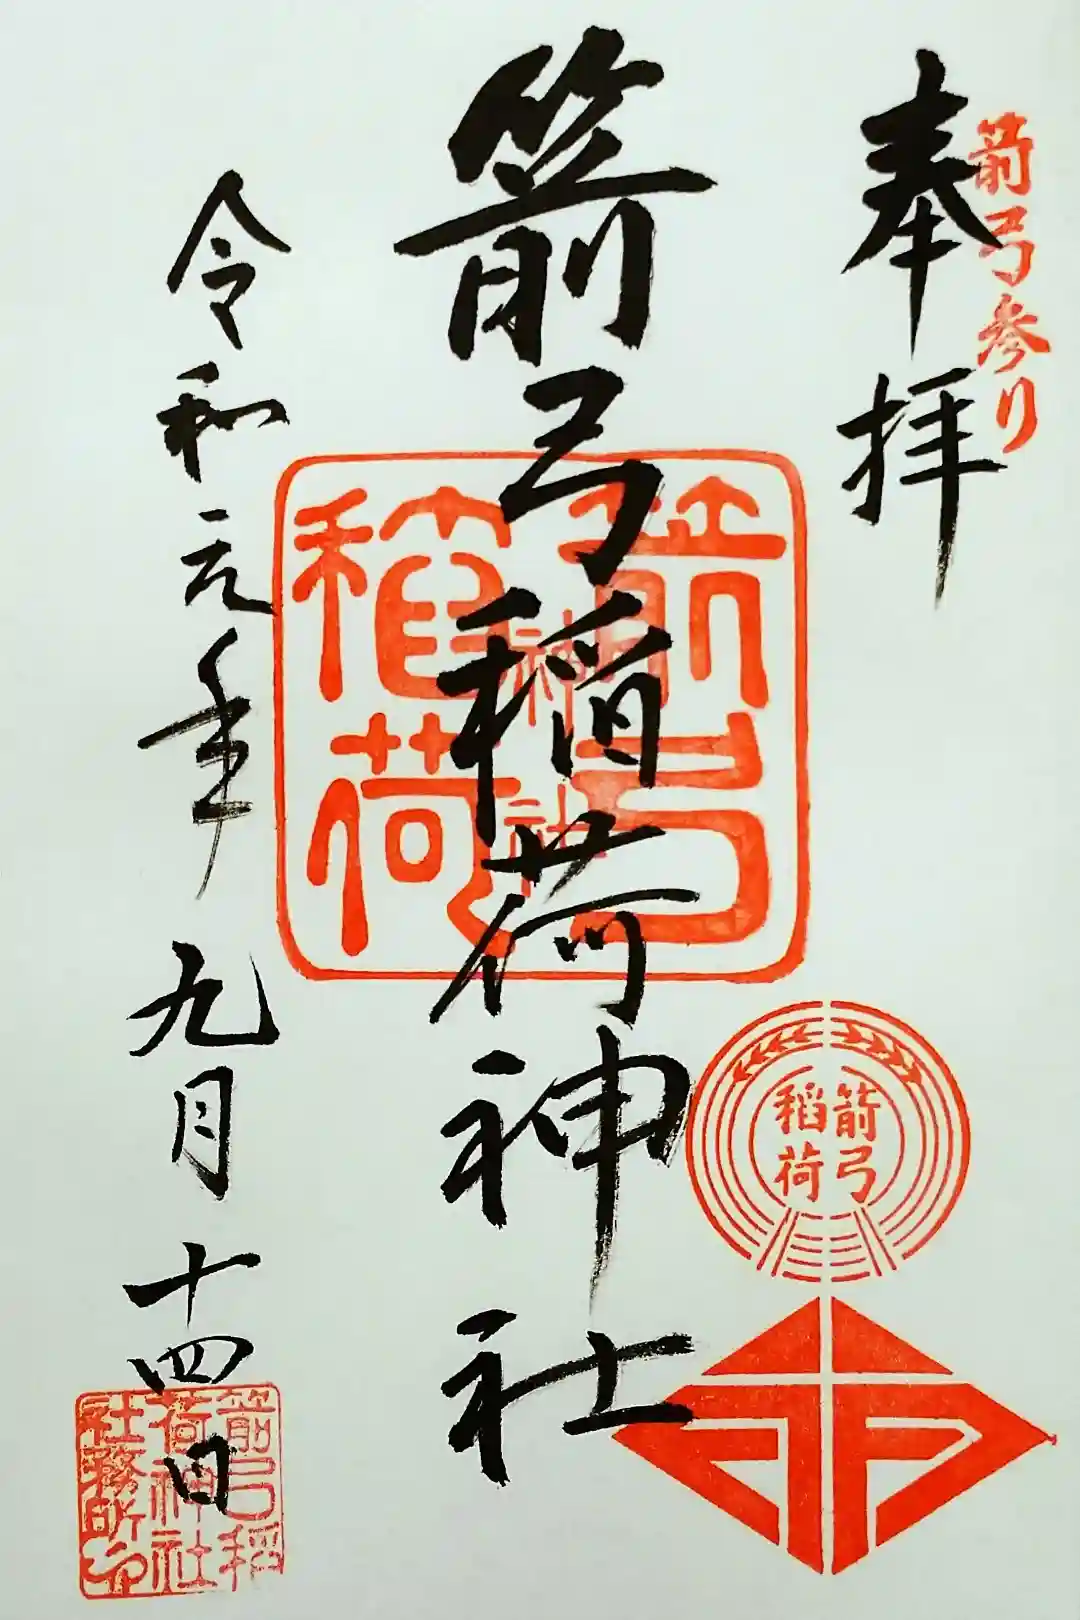 箭弓参り
奉拝
箭弓稲荷神社
箭弓
稲荷
神社
箭弓
稲荷
令和元年九月十四日
箭弓稲
荷神社
社務所印